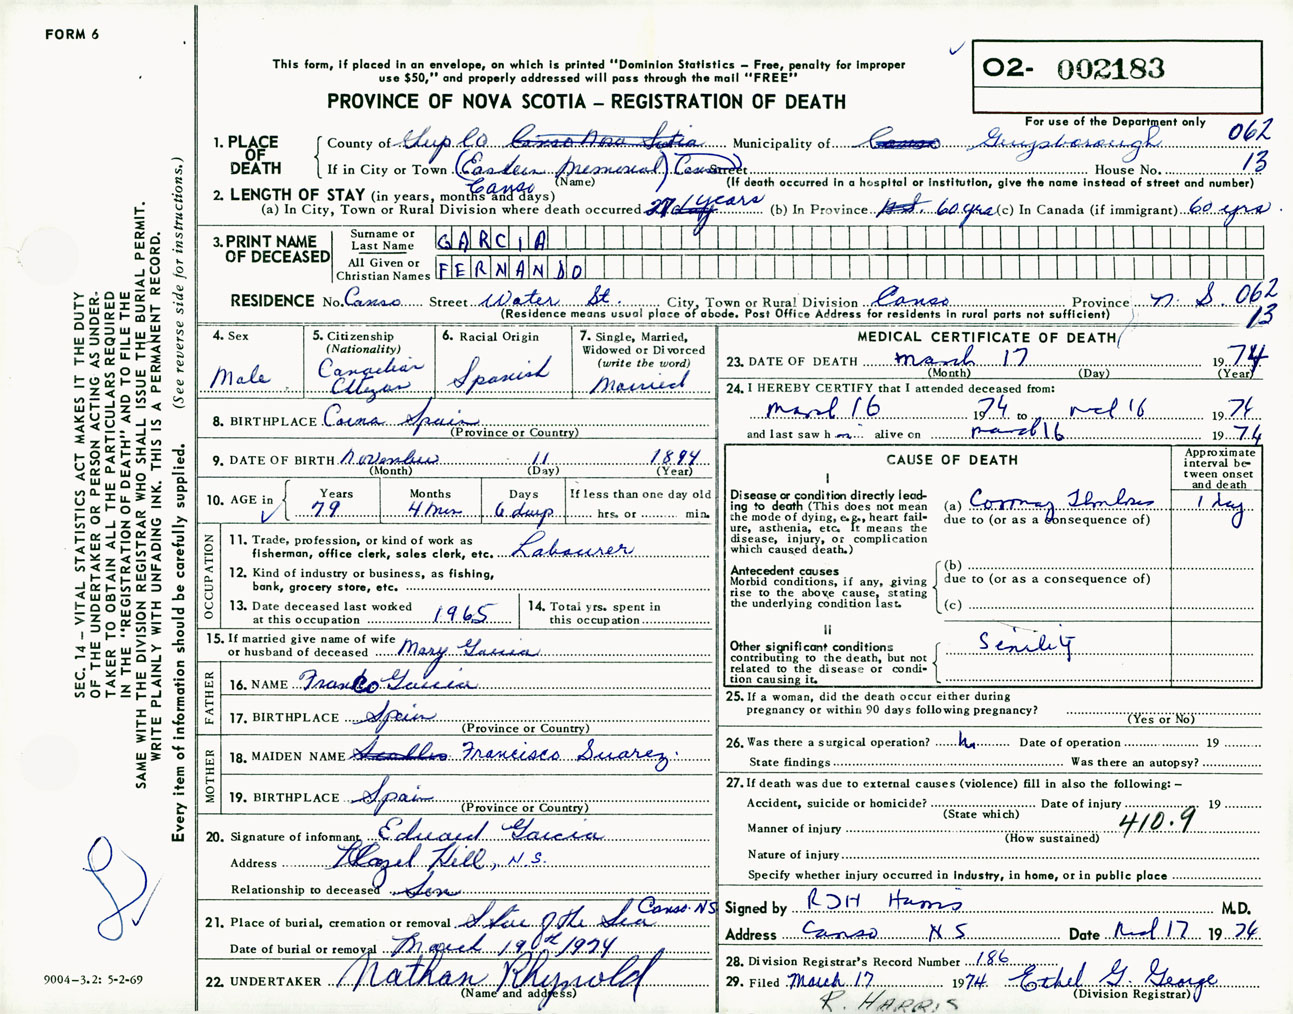 FORM 6
This form, if placed in an envelope, on which is printed "Dominion Statistics – Free, penalty for improper
use $50," and properly addressed will pass through the mail "FREE"
PROVINCE OF NOVA SCOTIA – REGISTRATION OF DEATH
O2- 002183
For use of the Department only
062
13
1. PLACE OF DEATH
County of Guy Co Canso Nova Scotia Municipality of Canso Guysborough
If in City or Town (Eastern Memorial) Canso Street House No.
Canso (Name) (If death occurred in a hospital or institution, give the name instead of street and number)
2. LENGTH OF STAY (in years, months and days)
(a) In City, Town or Rural Division where death occurred years (b) In Province N.S. 60 yrs (c) In Canada (if immigrant) 60 yrs.
3. PRINT NAME OF DECEASED
Surname or Last Name GARCIA
All Given or Christian Names FERNANDO
RESIDENCE No. Canso Street Water St. City, Town or Rural Division Canso Province N. S. 062
(Residence means usual place of abode. Post Office Address for residents in rural parts not sufficient) 13
4. Sex
Male
5. Citizenship (Nationality)
Canadian Citizen
6. Racial Origin
Spanish
7. Single, Married, Widowed or Divorced (write the word)
Married
8. BIRTHPLACE Spain
(Province or Country)
9. DATE OF BIRTH November 11 1894
(Month) (Day) (Year)
10. AGE in Years Months Days If less than one day old
79 4 6 days hrs. or min.
OCCUPATION
11. Trade, profession, or kind of work as
fisherman, office clerk, sales clerk, etc. Labourer
12. Kind of industry or business, as fishing,
bank, grocery store, etc.
13. Date deceased last worked
at this occupation 1965
14. Total yrs. spent in
this occupation
15. If married give name of wife
or husband of deceased Mary Garcia
FATHER
16. NAME Franco Garcia
17. BIRTHPLACE Spain
(Province or Country)
MOTHER
18. MAIDEN NAME Francisco Suarez.
19. BIRTHPLACE Spain
(Province or Country)
20. Signature of informant Eduard Garcia
Address Hazel Hill, N.S.
Relationship to deceased Son
21. Place of burial, cremation or removal Star of the Sea Canso. NS
Date of burial or removal March 19th 1974
22. UNDERTAKER Nathan Rhynold
(Name and address)
MEDICAL CERTIFICATE OF DEATH
23. DATE OF DEATH March 17 1974
(Month) (Day) (Year)
24. I HEREBY CERTIFY that I attended deceased from:
March 16 1974 to 16 1974
and last saw h alive on March 16 1974
CAUSE OF DEATH
Approximate interval between onset and death
I
Disease or condition directly lead-
ing to death (This does not mean
the mode of dying, e.g., heart fail-
ure, asthenia, etc. It means the
disease, injury, or complication
which caused death.)
(a) Coronary Thrombosis 1 day
due to (or as a consequence of)
Antecedent causes
Morbid conditions, if any, giving
rise to the above cause, stating
the underlying condition last.
(b)
due to (or as a consequence of)
(c)
II
Other significant conditions
contributing to the death, but not
related to the disease or condi-
tion causing it.
Senility
25. If a woman, did the death occur either during
pregnancy or within 90 days following pregnancy?
(Yes or No)
26. Was there a surgical operation? No Date of operation 19
State findings Was there an autopsy?
27. If death was due to external causes (violence) fill in also the following: –
Accident, suicide or homicide? Date of injury 19
(State which)
Manner of injury 410.9
(How sustained)
Nature of injury
Specify whether injury occurred in industry, in home, or in public place
Signed by RJH Harris M.D.
Address Canso N S Date 17 1974
28. Division Registrar's Record Number 186
29. Filed March 17 1974 Ethel G. George
(Division Registrar)
R. HARRIS
SEC. 14 – VITAL STATISTICS ACT MAKES IT THE DUTY
OF THE UNDERTAKER OR PERSON ACTING AS UNDER-
TAKER TO OBTAIN ALL THE PARTICULARS REQUIRED
IN THE "REGISTRATION OF DEATH" AND TO FILE THE
SAME WITH THE DIVISION REGISTRAR WHO SHALL ISSUE THE BURIAL PERMIT.
WRITE PLAINLY WITH UNFADING INK. THIS IS A PERMANENT RECORD.
Every item of information should be carefully supplied. (See reverse side for instructions.)
9004–3.2: 5-2-69